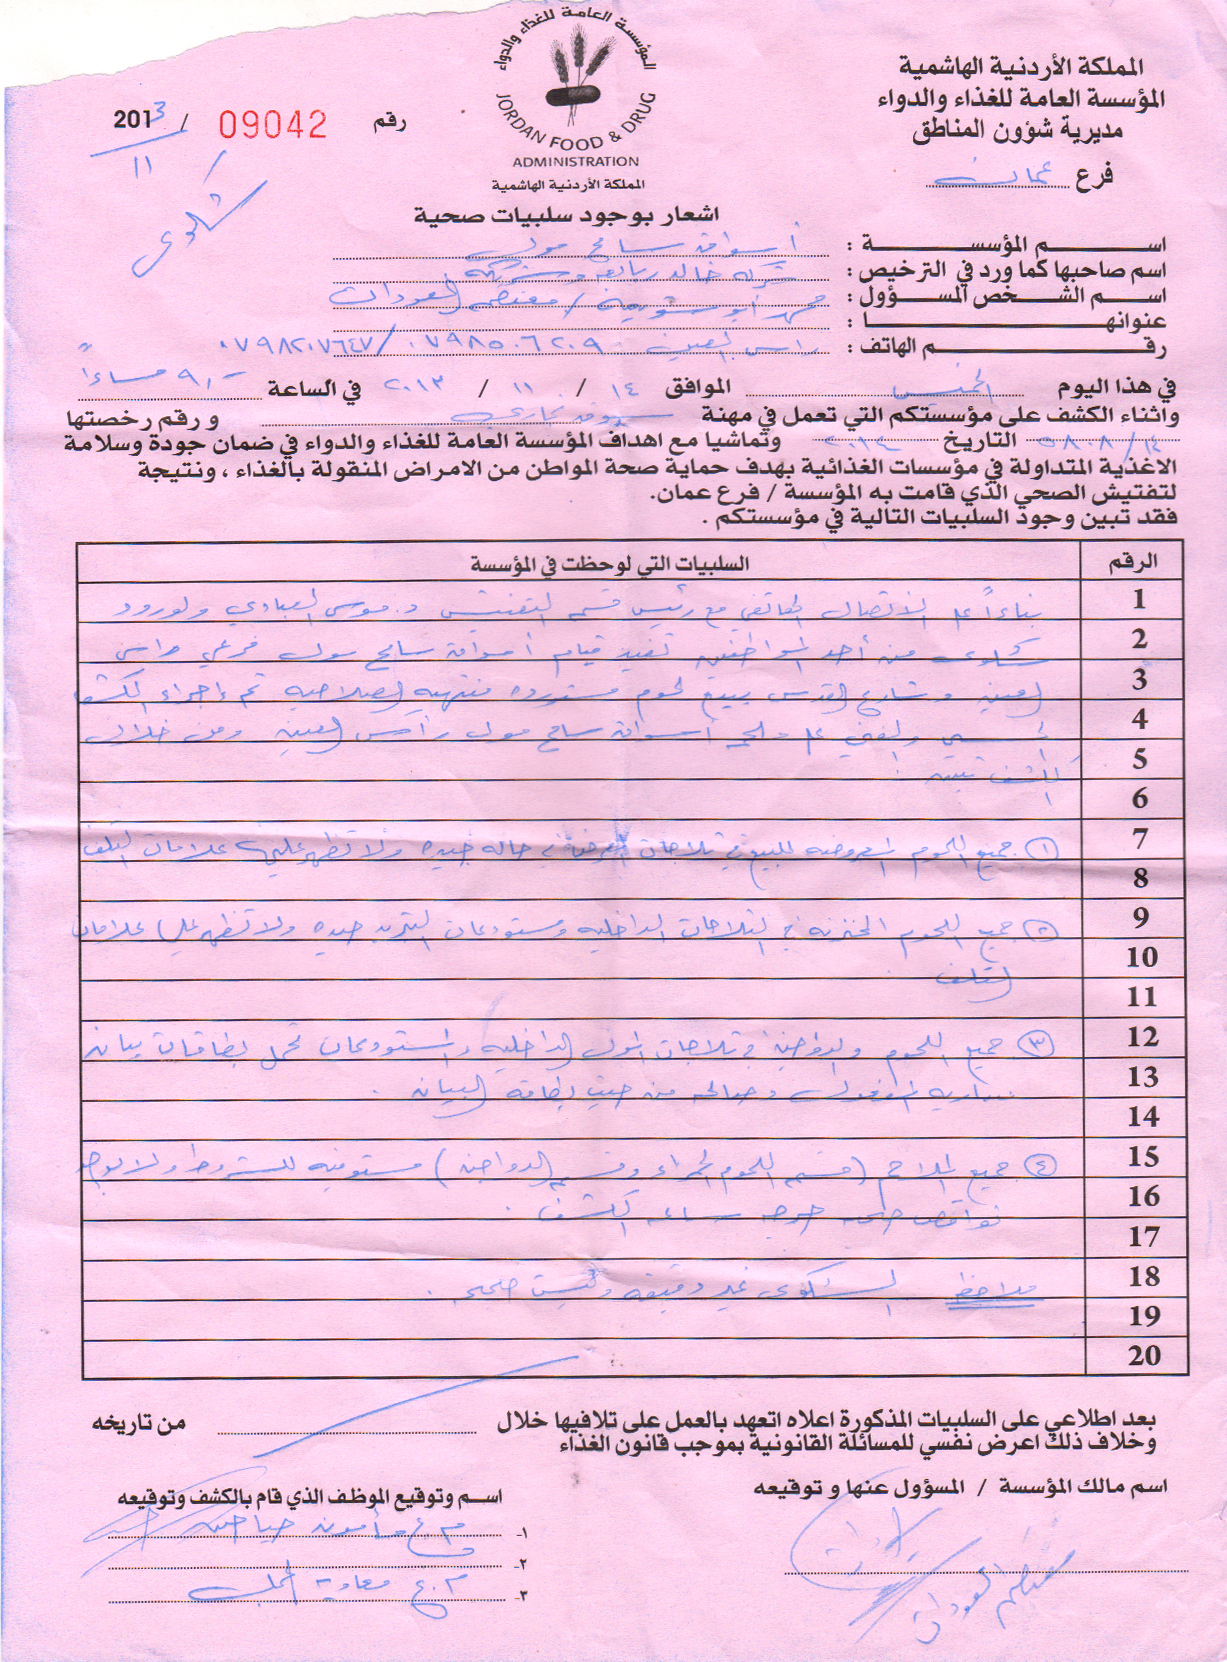 المملكة الأردنية الهاشمية
المؤسسة العامة للغذاء والدواء
مديرية شؤون المناطق
فرع عمان
المؤسسة العامة للغذاء والدواء
JORDAN FOOD & DRUG
ADMINISTRATION
المملكة الاردنية الهاشمية
رقم 09042 / 2013
١١
شكوى
اشعار بوجود سلبيات صحية
اسم المؤسسة : أسواق سامح مول
اسم صاحبها كما ورد في الترخيص : شركة خالد ربايعه وشريكه
اسم الشخص المسؤول : محمد أبو / معتصم العودات
عنوانها :
رقم الهاتف : راس العين ٠٧٩٨٥٠٦٢٠٩ / ٠٧٩٨٢٠٧٦٤٧
في هذا اليوم الخميس الموافق ١٤ / ١١ / ٢٠١٣ في الساعة ٩,٠٠ مساءاً
واثناء الكشف على مؤسستكم التي تعمل في مهنة سوق تجاري و رقم رخصتها
١٤/٥٨٠٨ التاريخ ٢٠١٢ وتماشيا مع اهداف المؤسسة العامة للغذاء والدواء في ضمان جودة وسلامة
الاغذية المتداولة في مؤسسات الغذائية بهدف حماية صحة المواطن من الامراض المنقولة بالغذاء ، ونتيجة
لتفتيش الصحي الذي قامت به المؤسسة / فرع عمان.
فقد تبين وجود السلبيات التالية في مؤسستكم .
الرقم السلبيات التي لوحظت في المؤسسة
1 بناءاً على الاتصال الهاتفي مع رئيس قسم التفتيش د. موسى العبادي ولورود
2 شكوى من أحد المواطنين تفيد قيام أسواق سامح مول فرعي راس
3 العين وشارع القدس ببيع لحوم مستورده منتهيه الصلاحيه تم إجراء الكشف
4 الحسي والفني على ملاحم أسواق سامح مول راس العين ومن خلال
5 الكشف تبين :
6
7 ① جميع اللحوم المعروضه للبيع في ثلاجات العرض في حاله جيده ولا تظهر عليها علامات التلف
8
9 ② جميع اللحوم المخزنه في الثلاجات الداخليه ومستودعات التبريد جيده ولا تظهر عليها علامات
10 التلف
11
12 ③ جميع اللحوم والدواجن في ثلاجات المول الداخليه والمستودعات تحمل بطاقات بيان
13 ساريه المفعول وصالحه من حيث بطاقة البيان .
14
15 ④ جميع الملاحم (قسم اللحوم الحمراء وقسم الدواجن) مستوفيه للشروط ولا يوجد
16 نواقص صحيه حرجه ساعه الكشف .
17
18 ملاحظه الشكوى غير دقيقه وليست صحيحه .
19
20
بعد اطلاعي على السلبيات المذكورة اعلاه اتعهد بالعمل على تلافيها خلال من تاريخه
وخلاف ذلك اعرض نفسي للمسائلة القانونية بموجب قانون الغذاء
اسم مالك المؤسسة / المسؤول عنها و توقيعه
معتصم العودات
اسم وتوقيع الموظف الذي قام بالكشف وتوقيعه
١- م.ع مأمون
٢-
٣- م.ع معاوية